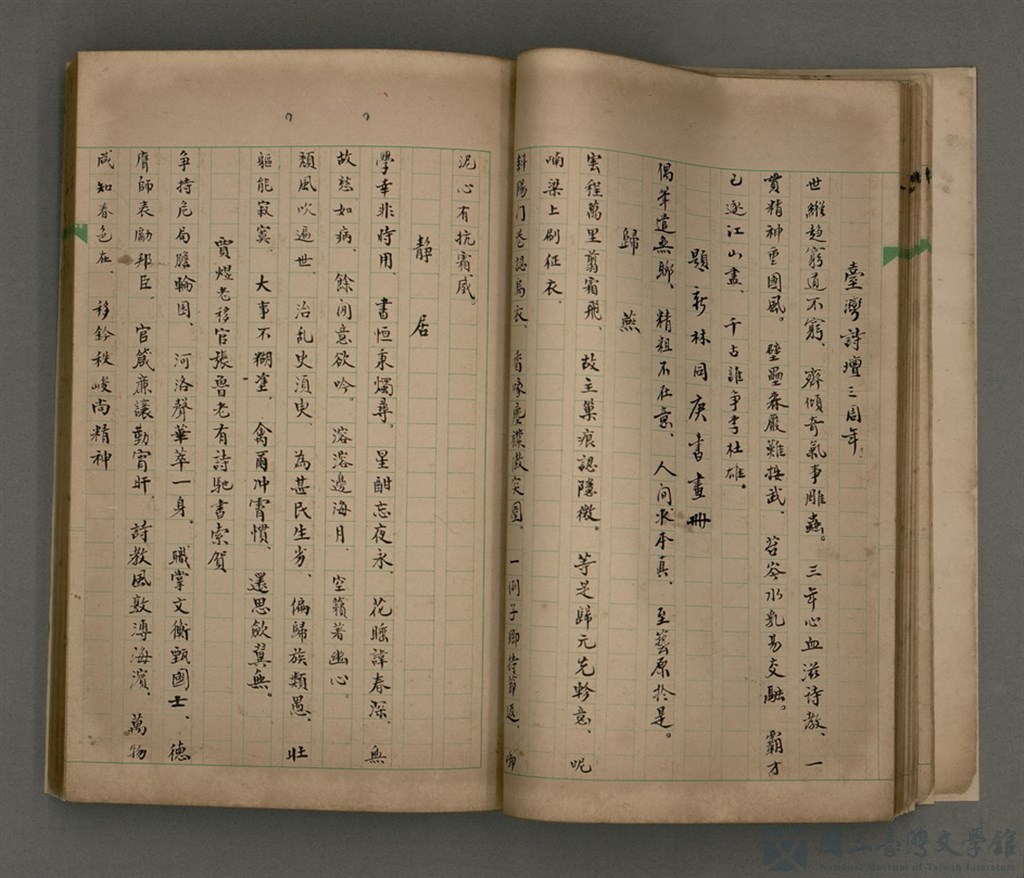 臺灣詩壇三周年
世維趨窮道不窮、齊傾奇氣事雕蟲。三年心血滋詩教、一
貫精神重國風。壁壘森嚴難接武、苔岑水乳易交融。霸才
已逐江山盡、千古誰爭李杜雄。
題新林同庚書畫冊
偶筆造無聊、精粗不在意、人间求本真、至藝原於是。
歸燕
雲程萬里翦霜飛、故主巢痕認隱微。等是歸元先軫意、呢
喃梁上刷征衣、
斜陽门巷認烏衣、一例子卿持節返、啣
泥心有抗霜威。
靜居
學幸非時用、書恒秉燭尋。星酣忘夜永、花睡諱春深、無
故愁如病、餘閒意欲吟。溶溶邊海月、空籟著幽心。
頹風吹遍世、治乱史須臾、為甚民生劣、偏歸族類愚、壯
軀能寂寞、大事不糊塗、禽爾冲霄慣、還思飲翼無。
賈煜老移官張魯老有詩馳書索賀
爭持危局膽輪囷、河洛聲華萃一身。職掌文衡甄國士、德
膺師表勵邦臣、官箴廉讓勤宵旰、詩教風敦溥海濱、萬物
咸知春色在、移鈴秩峻尚精神
國立臺灣文學館
National Museum of Taiwan Literature